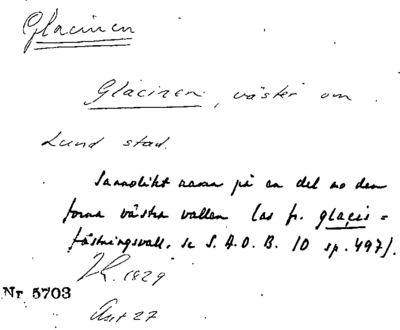 Glacinen
Glacinen, väster om
Lund stad.
Sannolikt namn på en del av den
forna västra vallen (av fr. glacis =
fästningsvall, se S.A.O.B. 10 sp. 497).
1829
Nr 5703
27